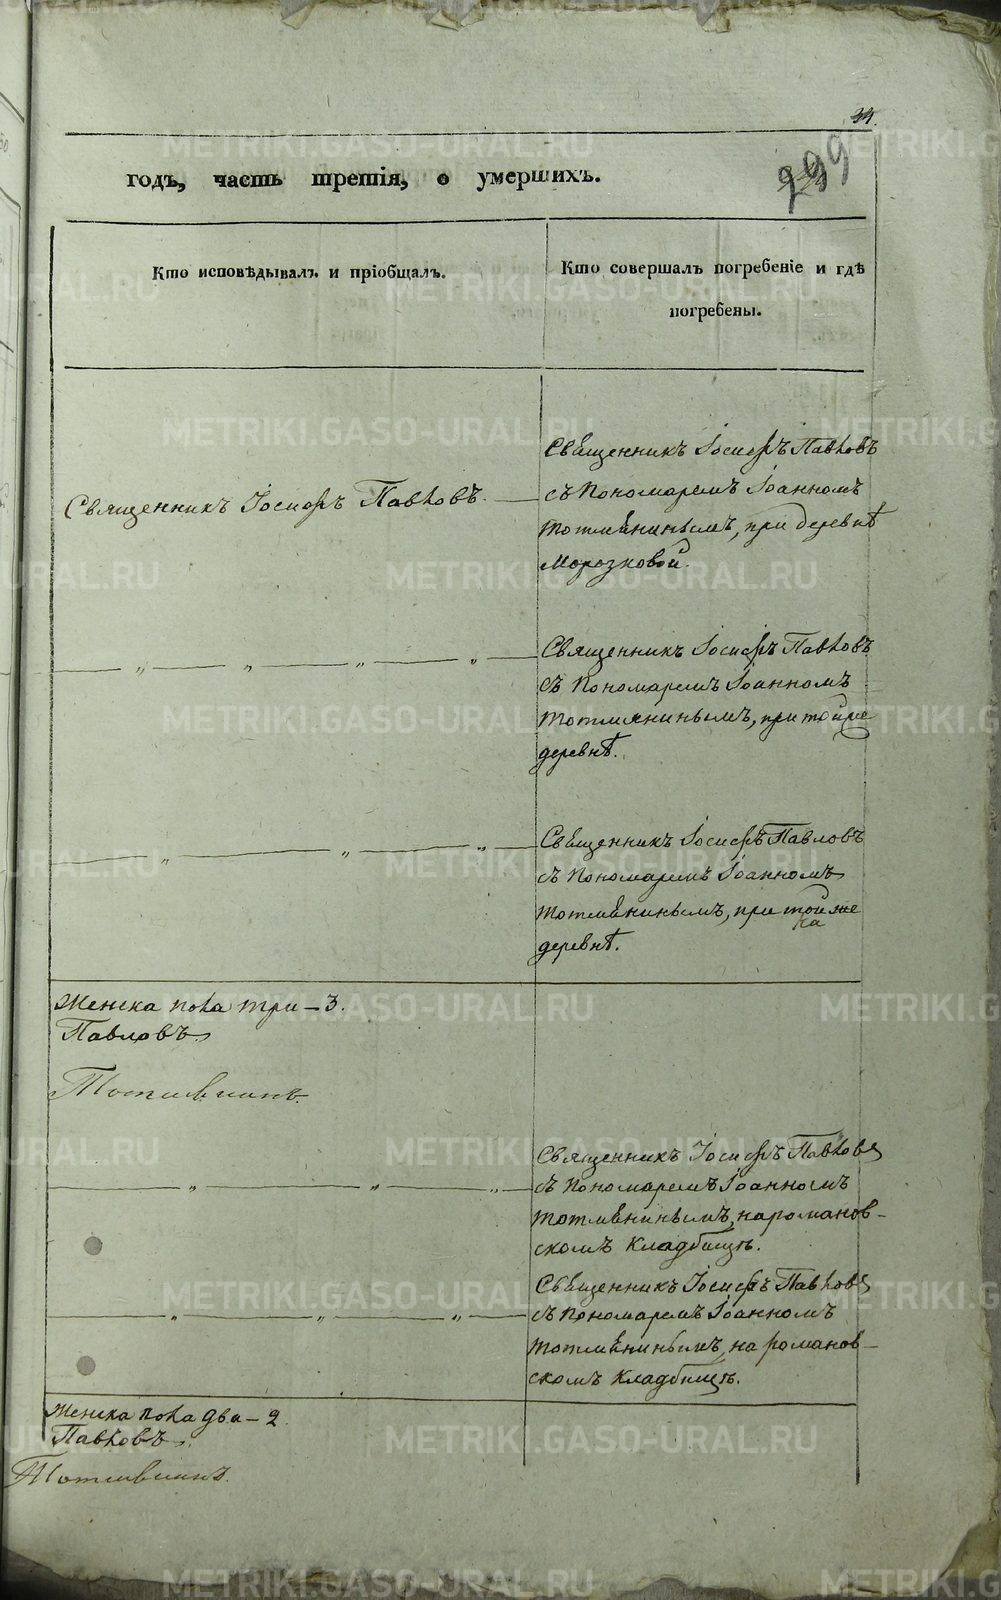 34
299
годъ, часть третія, о умершихъ.
Кто исповѣдывалъ и пріобщалъ.
Кто совершалъ погребеніе и гдѣ
погребены.
Священникъ Іосифъ Павловъ.
Священникъ Іосифъ Павловъ
съ Пономаремъ Іоанномъ
Тотмянинымъ, при деревнѣ
Морозковой.
— „ — „ — „ — „ —
Священникъ Іосифъ Павловъ
съ Пономаремъ Іоанномъ
Тотмянинымъ, при той же
деревнѣ.
— „ — „ — „ —
Священникъ Іосифъ Павловъ
съ Пономаремъ Іоанномъ
Тотмянинымъ, при той же
деревнѣ.
Женска пола три – 3.
Павловъ
Тотмянинъ
— „ — „ — „ —
Священникъ Іосифъ Павловъ
съ Пономаремъ Іоанномъ
Тотмянинымъ, на романов-
скомъ кладбищѣ.
— „ — „ — „ —
Священникъ Іосифъ Павловъ
съ Пономаремъ Іоанномъ
Тотмянинымъ, на романов-
скомъ кладбищѣ.
Женска пола два – 2.
Павловъ
Тотмянинъ.
METRIKI.GASO-URAL.RU